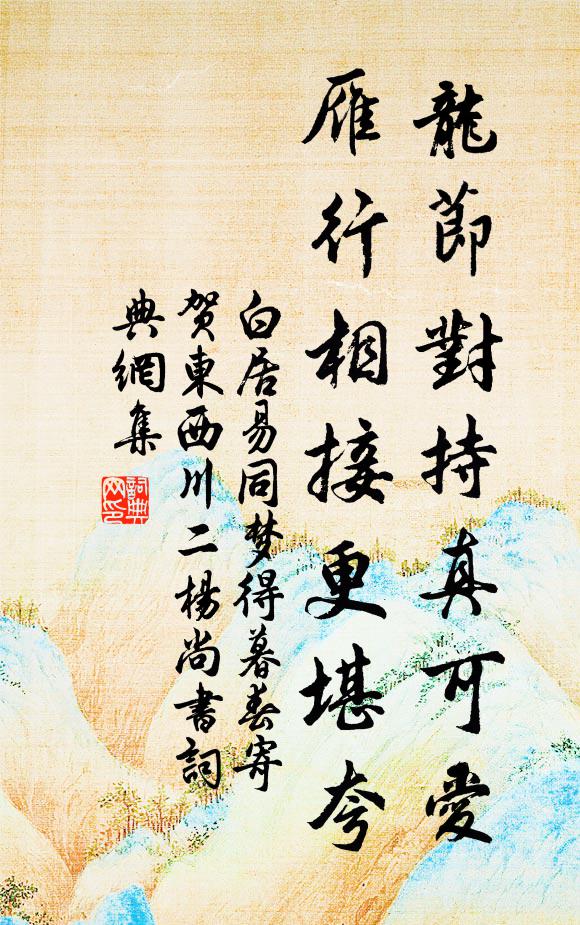 龍節對持真可愛
雁行相接更堪夸
白居易同梦得暮春寄
贺東西川二楊尚書詞
典網集
詞典網印